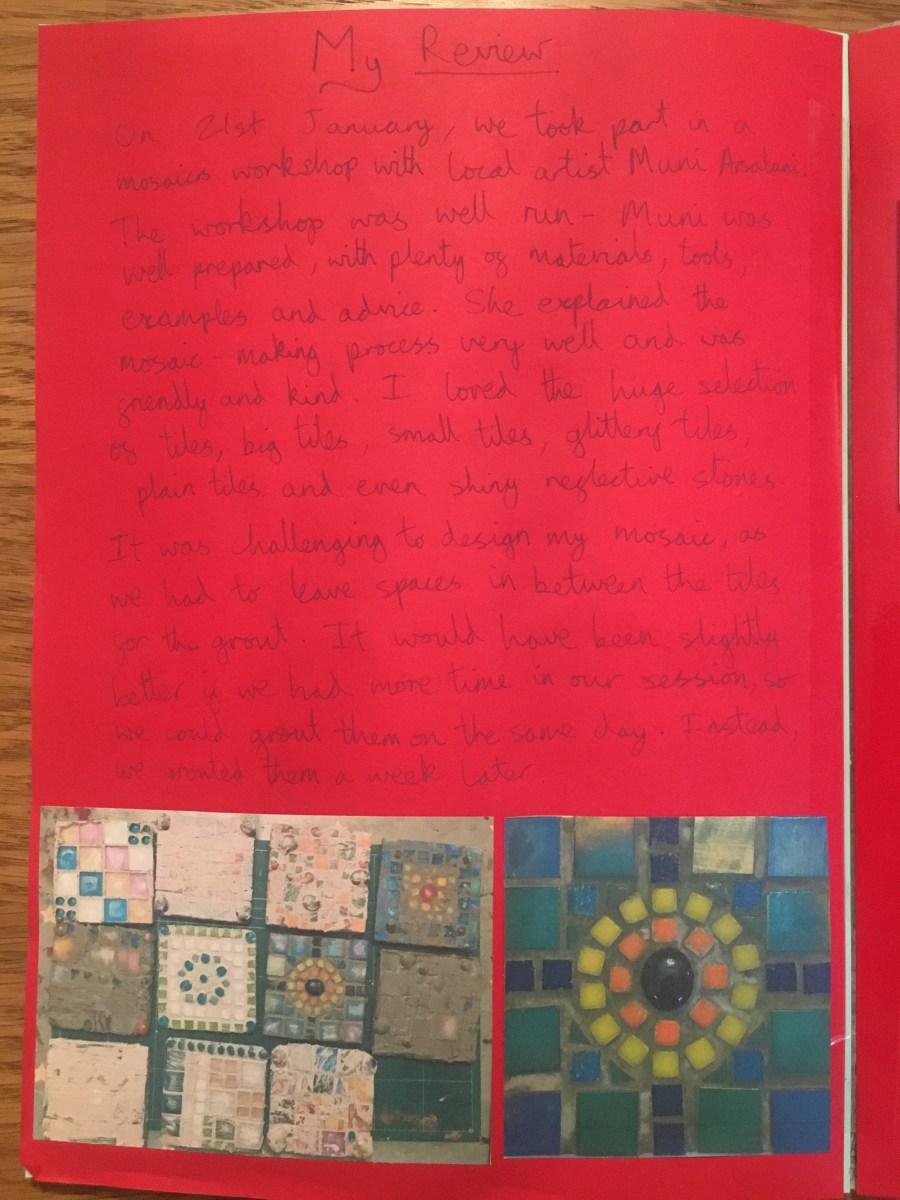 My Review
On 21st January, we took part in a
mosaics workshop with local artist Muni Arsalani.
The workshop was well run - Muni was
well prepared, with plenty of materials, tools,
examples and advice. She explained the
mosaic-making process very well and was
friendly and kind. I loved the huge selection
of tiles, big tiles, small tiles, glittery tiles,
plain tiles and even shiny reflective stones.
It was challenging to design my mosaic, as
we had to leave spaces in between the tiles
for the grout. It would have been slightly
better if we had more time in our session, so
we could grout them on the same day. Instead,
we grouted them a week later.